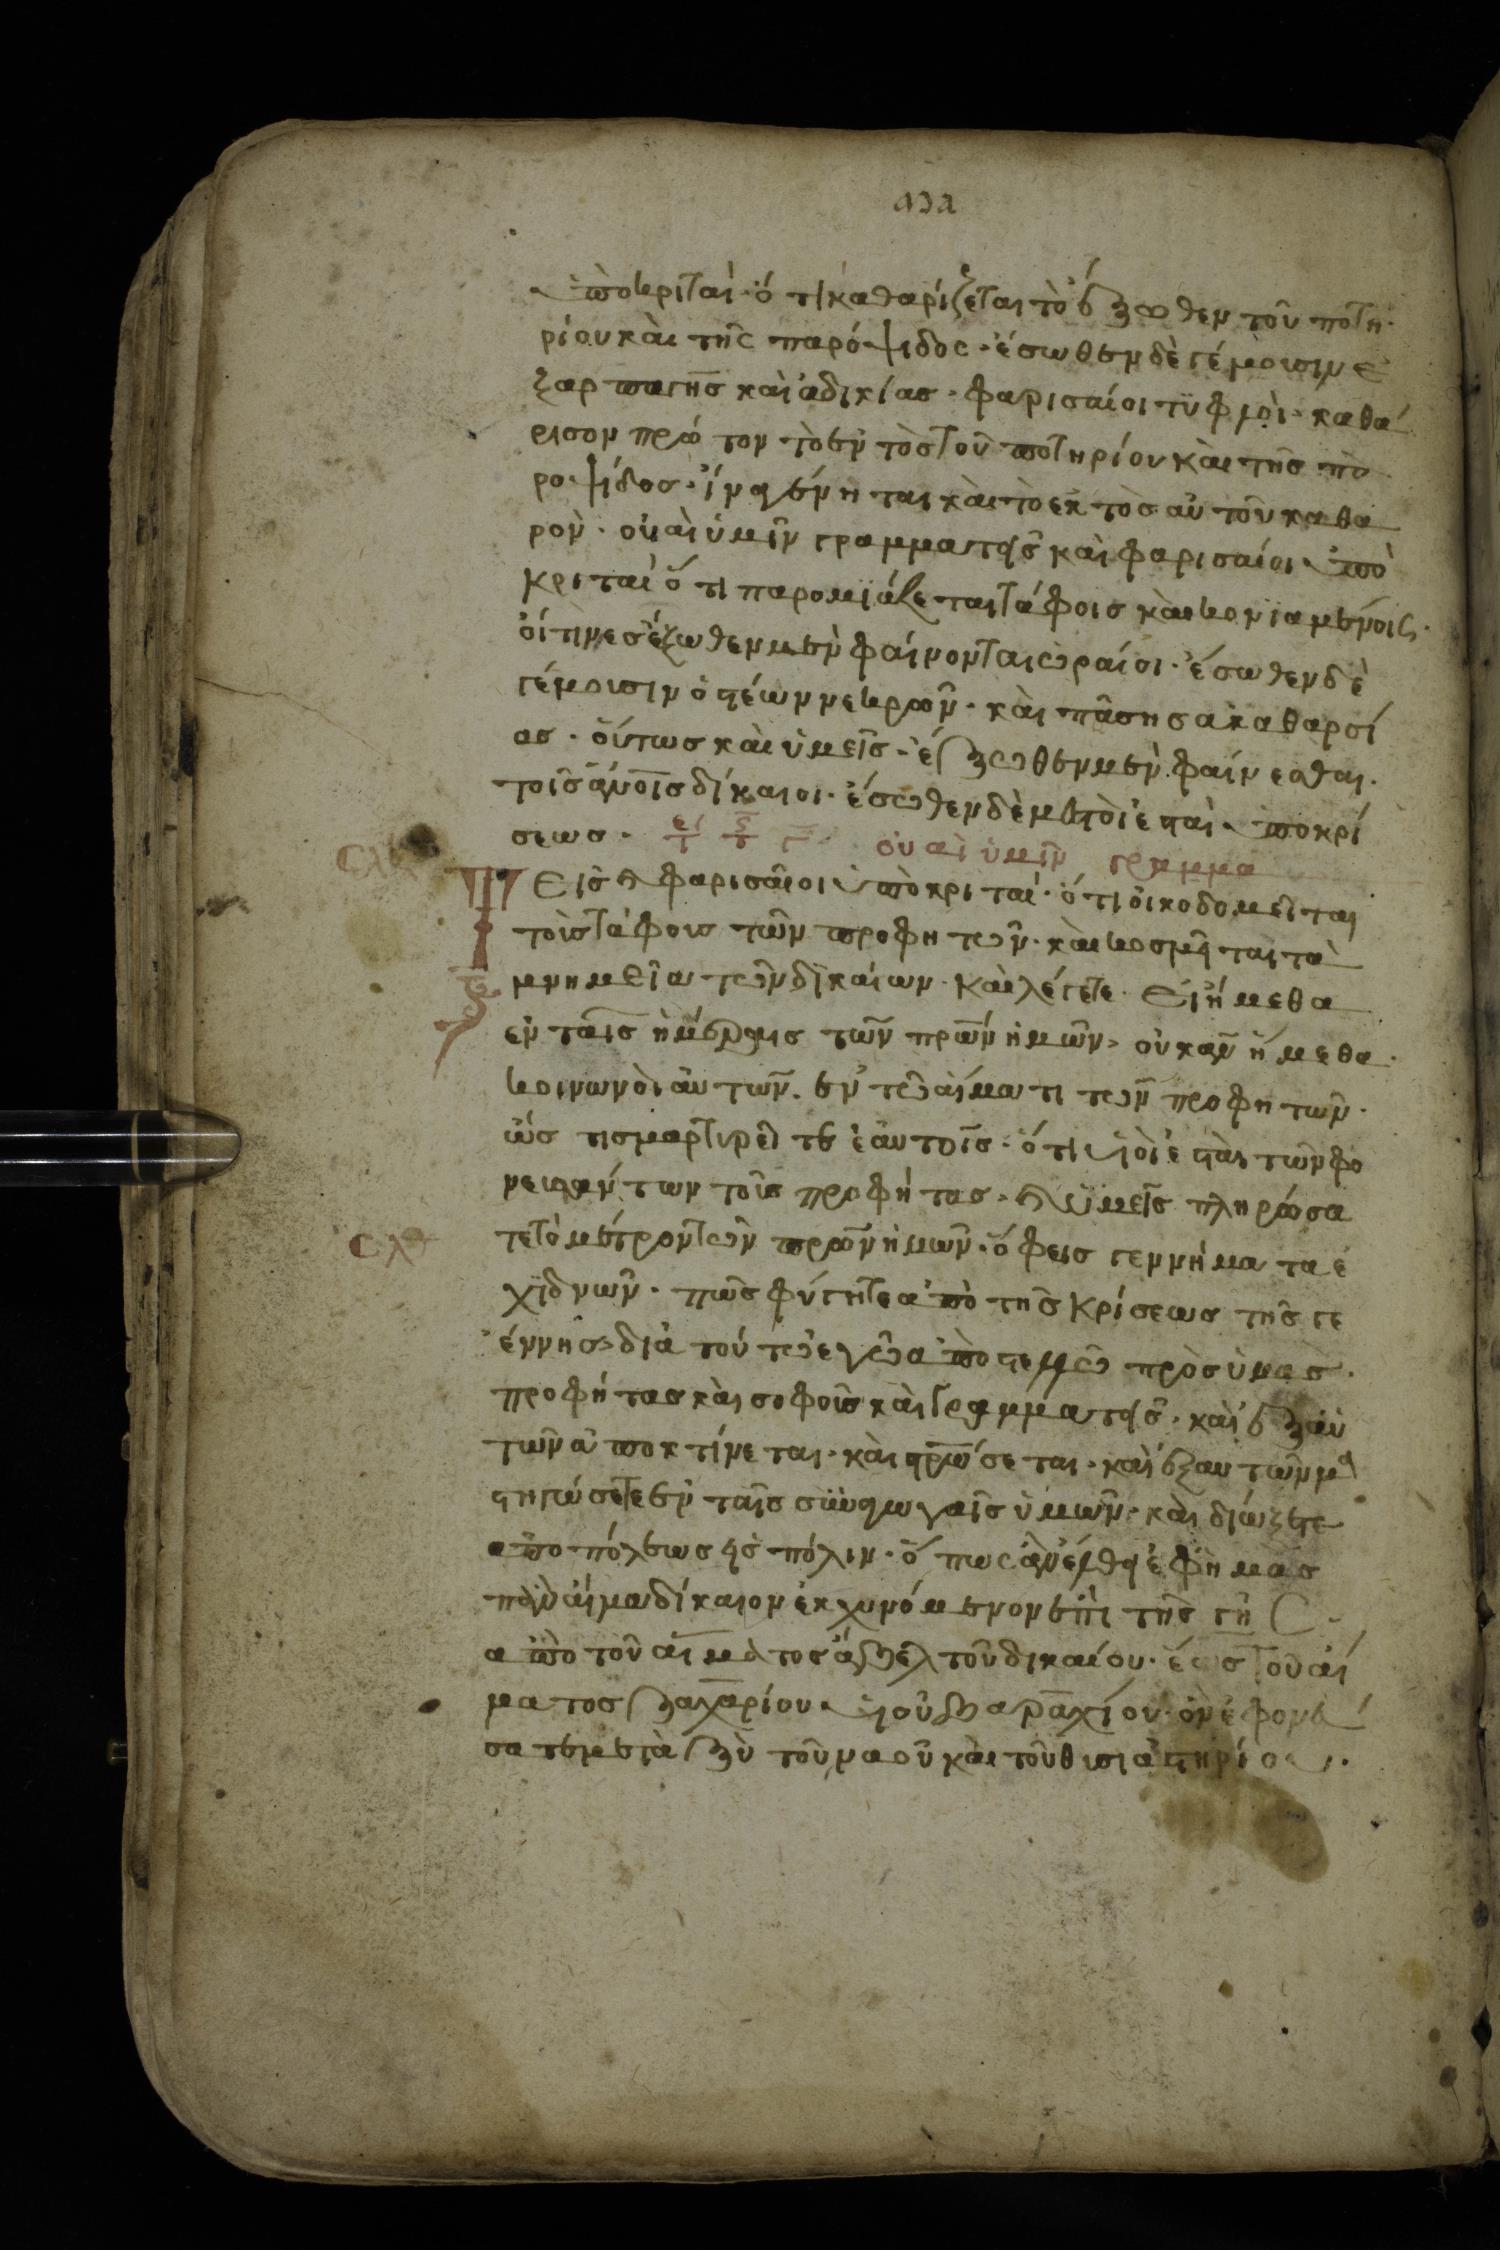 ὑποκριταί· ὅτι καθαρίζεται τὸ ἔξωθεν τοῦ ποτη
ρίου καὶ τῆς παρόψιδος· ἔσωθεν δὲ γέμουσιν ἐ
ξαρπαγῆς καὶ ἀδικίας· φαρισαίοι τυφλοὶ· καθά
ρισον πρώτον τὸ ἐντὸς τοῦ ποτηρίου καὶ τῆς πα
ροψίδος· ἵνα γένηται καὶ τὸ ἐκτὸς αὐτοῦ καθα
ρὸν· οὐαὶ ὑμῖν γραμματεῖς καὶ φαρισαίοι ὑπο
κριταί ὅτι παρομϊάζεται τάφοις κεκονϊαμένοις·
οἵτινες ἔξωθεν μὲν φαίνονται ὡραίοι· ἔσωθεν δὲ
γέμουσιν ὀστέων νεκρῶν· καὶ πάσης ἀκαθαρσί
ας· οὕτως καὶ ὑμεῖς· ἔξωθεν μὲν φαίνεσθαι·
τοῖς ἀνοις δίκαιοι· ἔσωθεν δὲ μεστοὶ ἐσταὶ ὑποκρί
σεως· οὐαὶ ὑμῖν γραμμα
Τεις καὶ φαρισαῖοι ὑποκριταί· ὅτι οἰκοδομεῖται
τοὺς τάφους τῶν προφητῶν· καὶ κοσμῆται τὰ
μνημεῖα τῶν δϊκαίων· καὶ λέγετε· Εἰ ἤμεθα
ἐν ταῖς ἡμέραις τῶν πρων ἡμῶν, οὐκ ἂν ἤμεθα
κοινωνοὶ αὐτῶν· ἐν τῶ αἵματι τῶν προφητῶν·
ὥς τις μαρτιρεῖτε ἑαυτοῖς· ὅτι υἱοὶ ἐσταὶ τῶν φο
νευσάντων τοὺς προφήτας· καὶ ὑμεῖς πληρώσα
τε τὸ μέτρον τῶν πρων ἡμῶν· ὄφεις γεννήματα ἐ
χϊδνῶν· πῶς φύγητε ἀπὸ τῆς κρίσεως τῆς γε
έννης, διὰ τούτω ἐγὼ ἀποστελλῶ πρὸς ὑμας·
προφήτας καὶ σοφοῦς καὶ γραμματεῖς· καὶ ἐξ αὐ
τῶν ἀποκτίνεται· καὶ στρώσεται· καὶ ἐξ αυτῶν μα
στηγώσετε ἐν ταῖς συναγωγαῖς ὑμῶν· καὶ διώξετε
ἀπο πόλεως εἰς πόλιν· ὅπως ἂν ἔλθη ἐφ ἡμᾶς
πᾶν αἷμα δίκαιον ἐκχυνόμενον ἐπὶ τῆς γῆς
ἀπὸ τοῦ αἵματος ἄβελ τοῦ δικαίου· ἕως τοῦ αἵ
ματος ζαχαρίου υἱοῦ βαραχίου· ὃν ἐφονεύ
σατε μεταξὺ τοῦ ναοῦ καὶ τοῦ θισιαστηρίου·